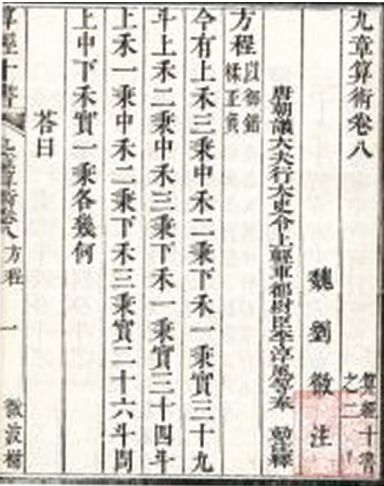 九章算術卷八
算經十書
之二
魏劉徽注
唐朝議大夫行太史令上輕車都尉臣李淳風等奉勅註釋
方程以御錯糅正負
今有上禾三秉中禾二秉下禾一秉實三十九
斗上禾二秉中禾三秉下禾一秉實三十四斗
上禾一秉中禾二秉下禾三秉實二十六斗問
上中下禾實一秉各幾何
答曰
算經十書
九章算術卷八方程
一
微波榭